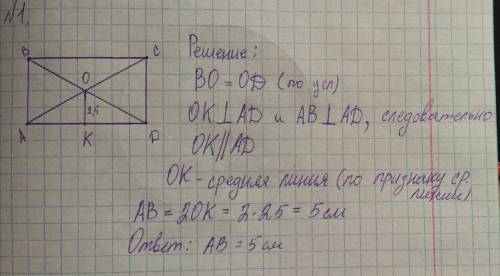 №1.
B C
O
2,5
A K D
Решение:
BO = OD (по усл)
OK⊥AD и AB⊥AD, следовательно
OK∥AD
OK - средняя линия (по признаку ср.
линии)
AB = 2OK = 2·2,5 = 5 см
Ответ: AB = 5 см